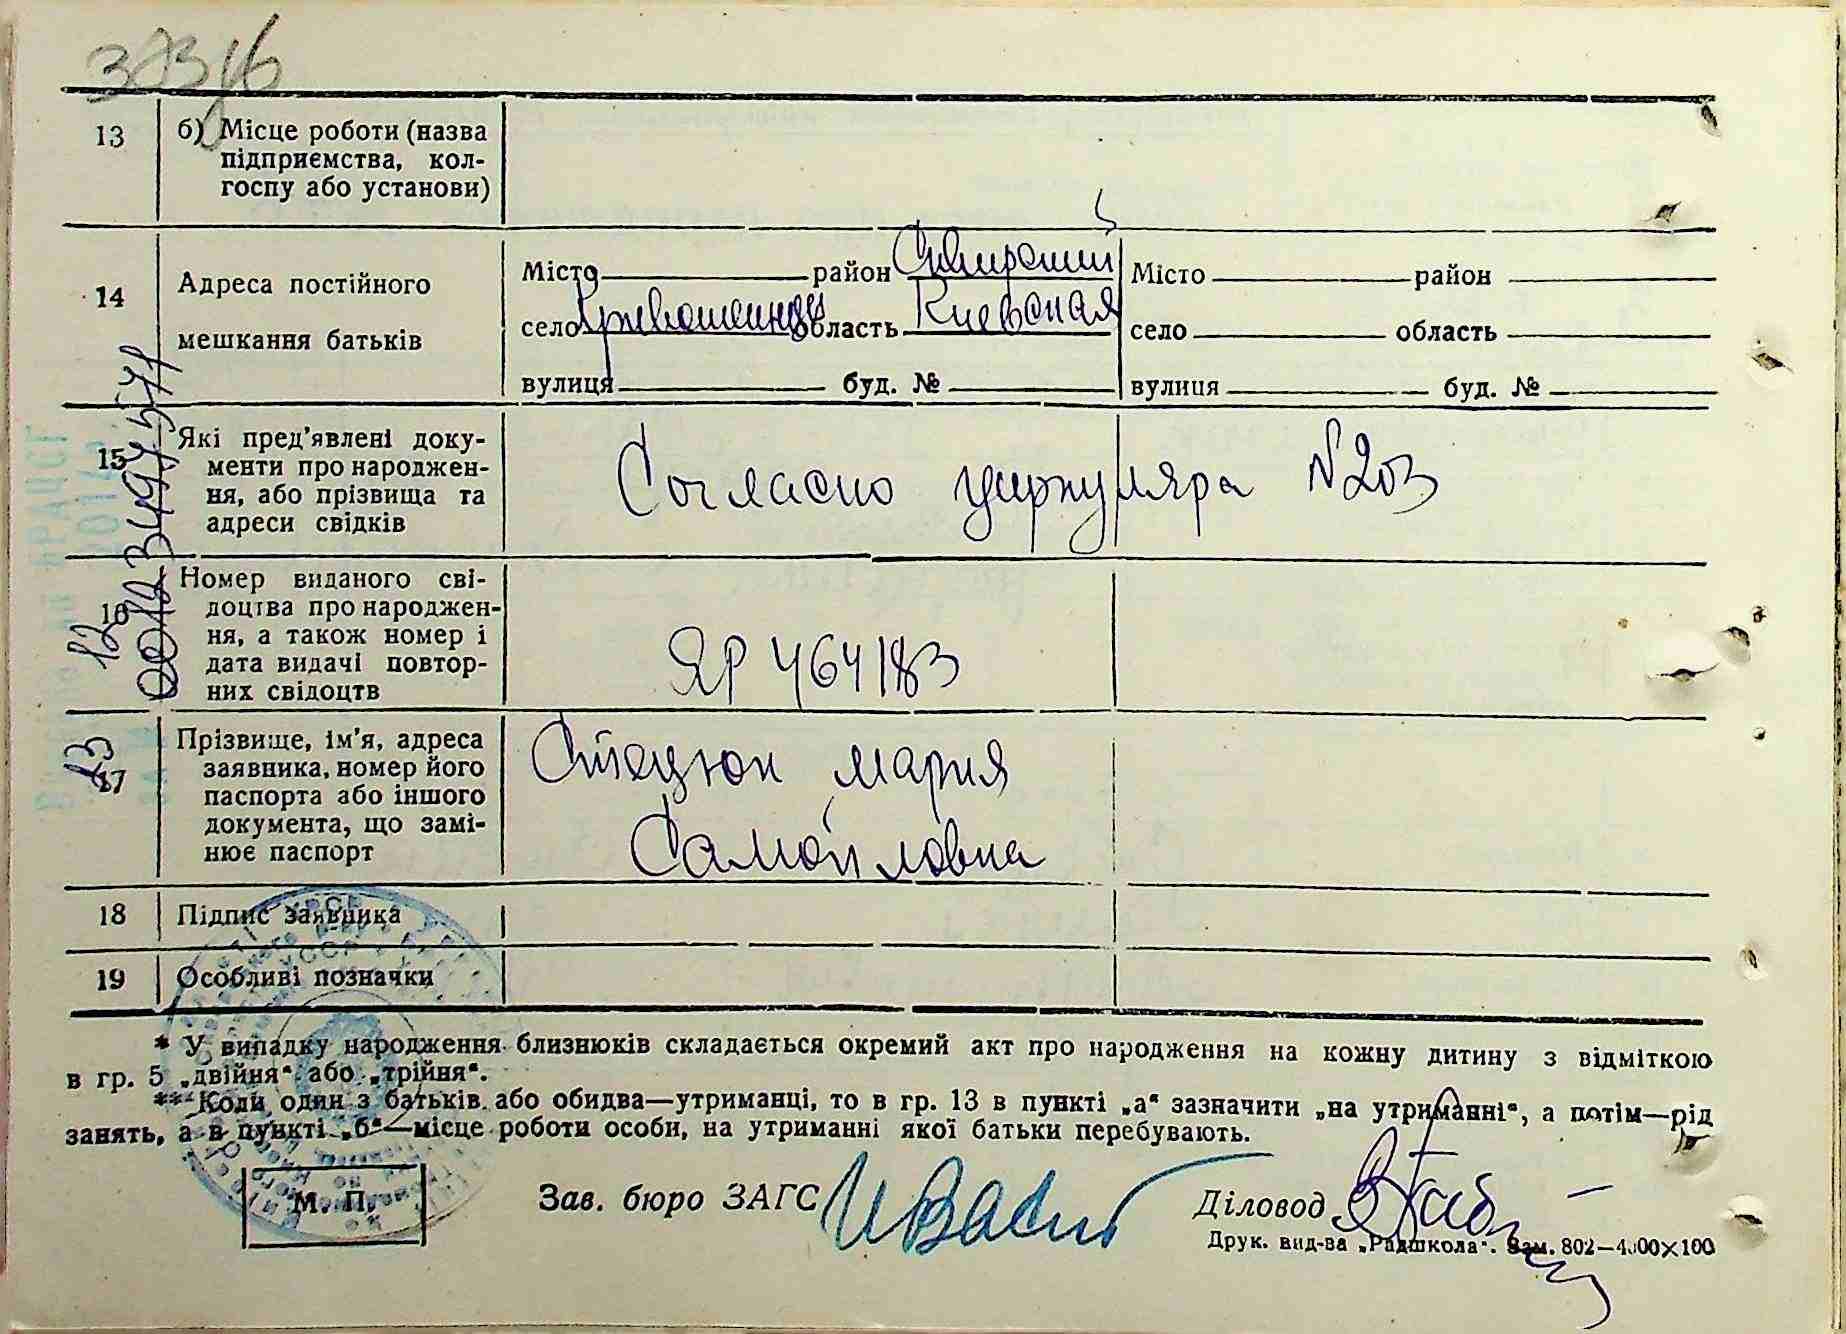 13 б) Місце роботи (назва
підприємства, кол-
госпу або установи)
14 Адреса постійного
мешкання батьків
Місто район Сквирский
село Кривошеинцы область Киевская
вулиця буд. №
Місто район
село область
вулиця буд. №
15 Які пред’явлені доку-
менти про народжен-
ня, або прізвища та
адреси свідків
Согласно циркуляра №203
16 Номер виданого сві-
доцтва про народжен-
ня, а також номер і
дата видачі повтор-
них свідоцтв
ЯР 464183
17 Прізвище, ім’я, адреса
заявника, номер його
паспорта або іншого
документа, що замі-
нює паспорт
Стецюк Мария
Самойловна
18 Підпис заявника
19 Особливі позначки
* У випадку народження близнюків складається окремий акт про народження на кожну дитину з відміткою
в гр. 5 „двійня“ або „трійня“.
** Коли один з батьків або обидва—утриманці, то в гр. 13 в пункті „а“ зазначити „на утриманні“, а потім—рід
занять, а в пункті „б“—місце роботи особи, на утриманні якої батьки перебувають.
М. П.
Зав. бюро ЗАГС
Діловод
Друк. вид-ва „Радшкола“. Зам. 802—4000×100